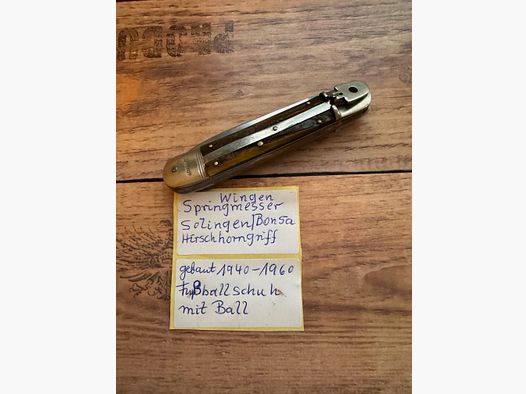 Wingen
Springmesser
Solingen/Bonsa
Hirschhorngriff
gebaut 1940-1960
Fußballschuh
mit Ball